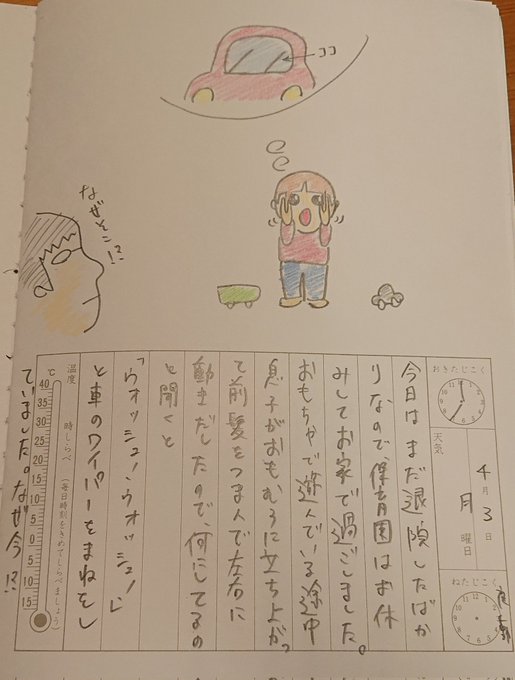 ココ
なぜそこ!?
おきたじこく
4月3日
月曜日
天気
ねたじこく
今日はまだ退院したばか
りなので、保育園はお休
みしてお家で過ごしました。
おもちゃで遊んでいる途中
息子がおもむろに立ち上がっ
て前髪をつまんで左右に
動きだしたので、何してるの
と聞くと
「ウォッシュ!ウォッシュ!」
と車のワイパーをまねをし
ていました。なぜ今!?
温度 時しらべ (毎日時刻をきめてしらべましょう)
℃ 40 35 30 25 20 15 10 5 0 5 10 15